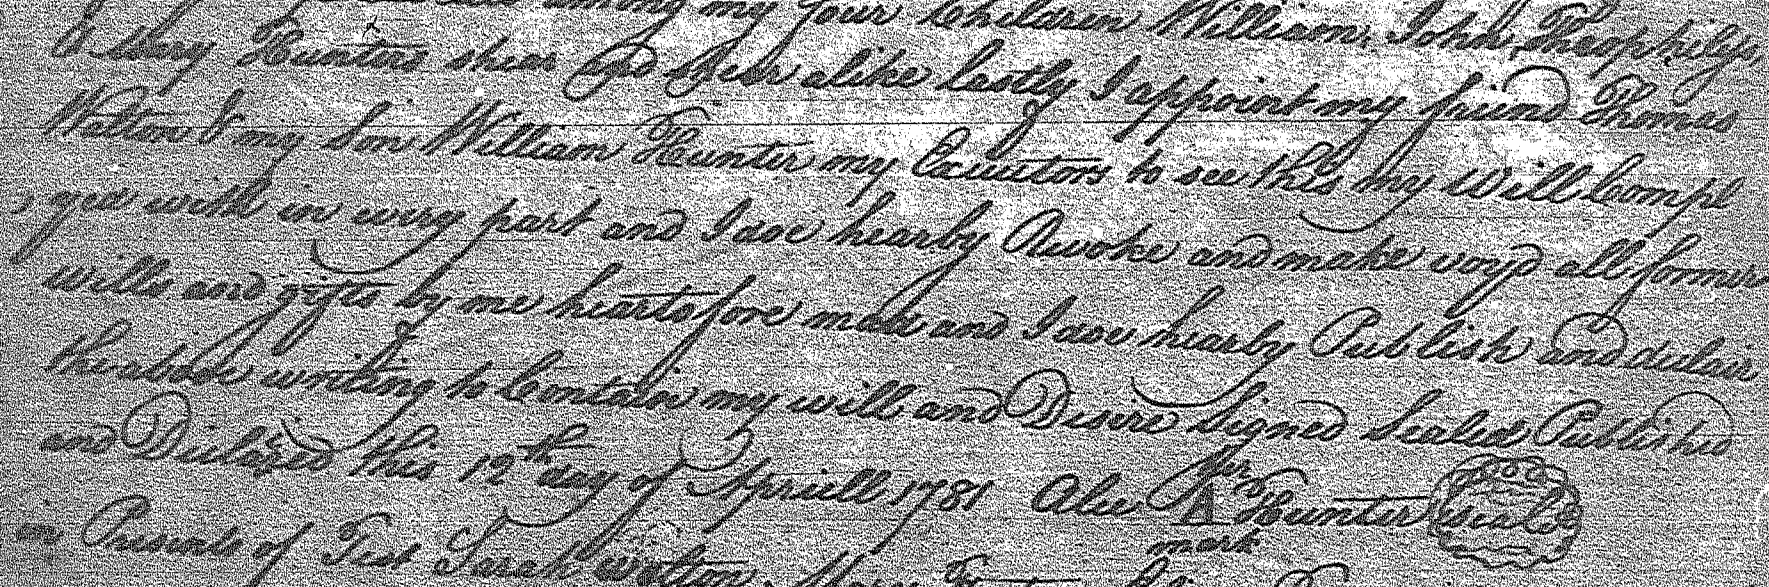 among my four Children William, John, Theophilys,
& Mary Hunters shear and shear alike lastly I appoint my friend Thomas
Walton & my Son William Hunter my Executors to see this my Will Compl
yed with in every part and I doe hearby Revoke and make voyd all former
wills and gifts by me heartofore made and I doe hearby Publish and declair
the above writing to Contain my will and Desire Signed Sealed Published
and Declared this 12th day of Aprill 1781 Alce her A mark Hunter seal
in Presents of Test Sarah